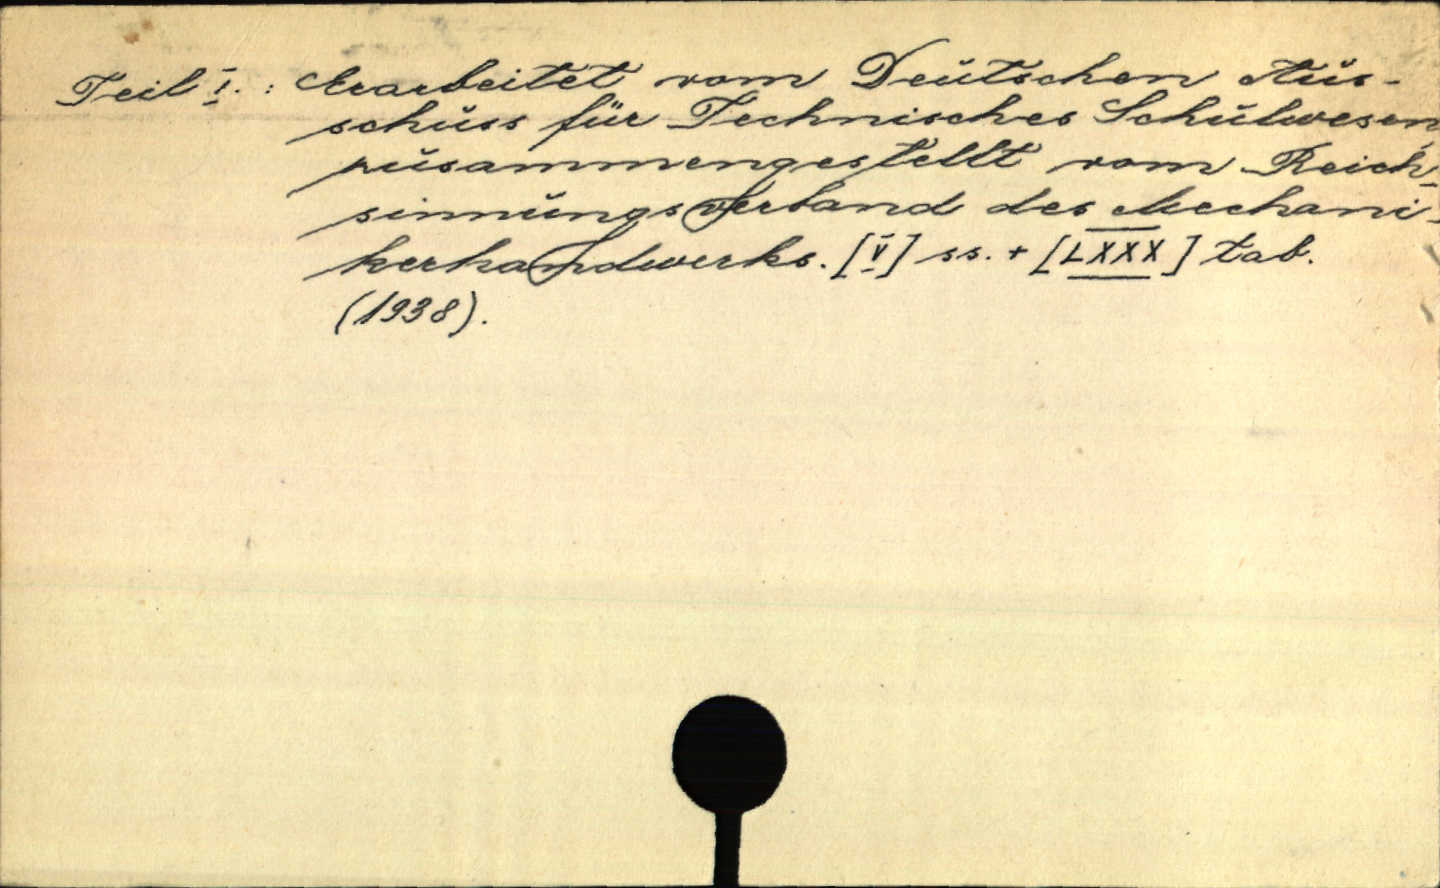 Teil I. : Erarbeitet vom Deutschen Aus-
schuss für Technisches Schulwesen
zusammengestellt vom Reich-
sinnungsverband des Mechani-
kerhandwerks. [V] ss. + [LXXX] tab.
(1938).